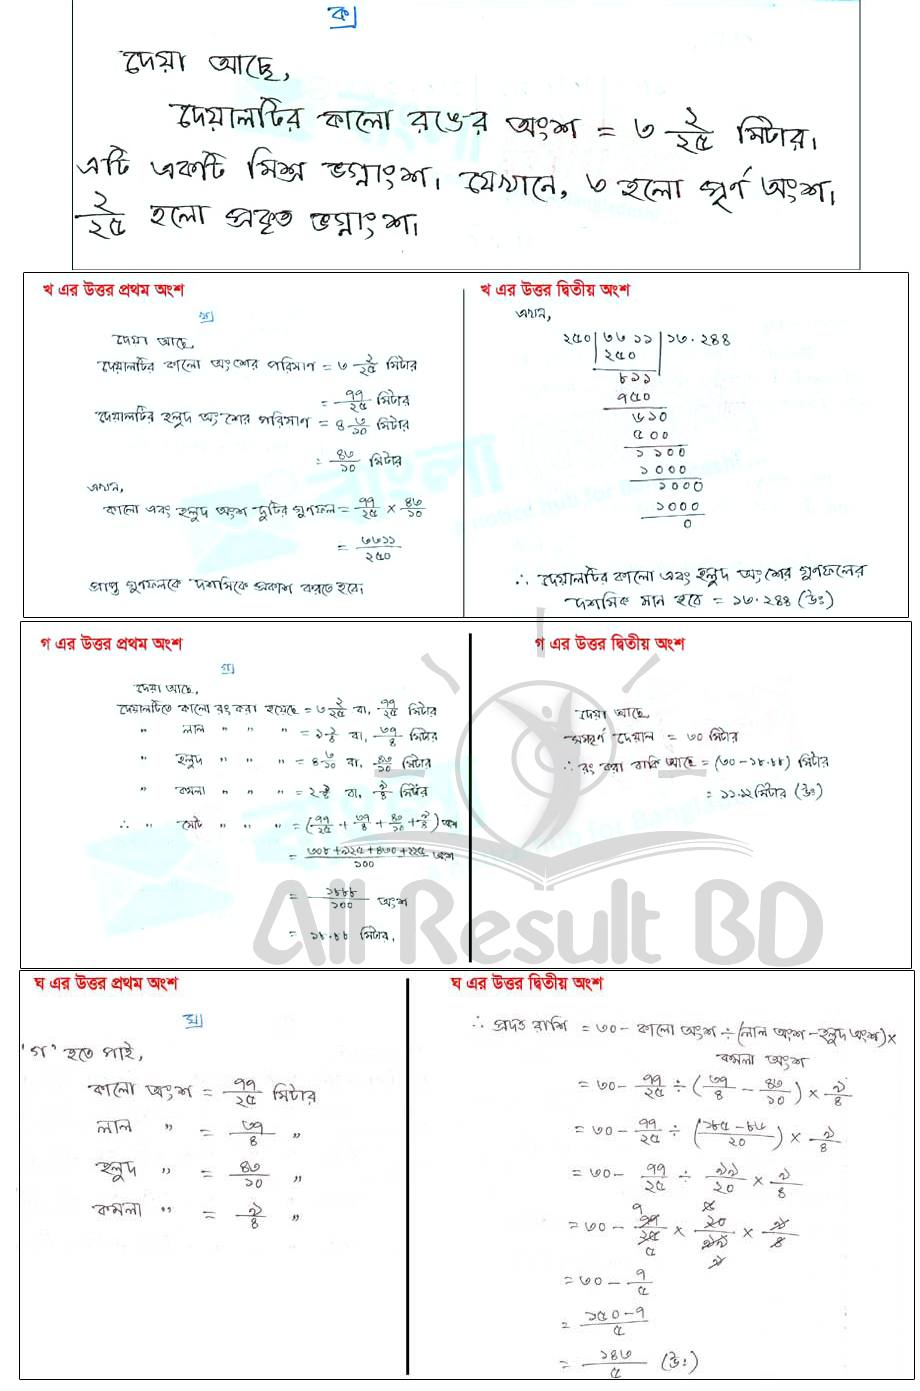 ক]
দেয়া আছে,
দেয়ালটির কালো রঙের অংশ = ৩ ২/২৫ মিটার।
এটি একটি মিশ্র ভগ্নাংশ। যেখানে, ৩ হলো পূর্ণ অংশ।
২/২৫ হলো প্রকৃত ভগ্নাংশ।
খ এর উত্তর প্রথম অংশ
খ]
দেয়া আছে,
দেয়ালটির কালো অংশের পরিমাণ = ৩ ২/২৫ মিটার
= ৭৭/২৫ মিটার
দেয়ালটির হলুদ অংশের পরিমাণ = ৪ ৩/১০ মিটার
= ৪৩/১০ মিটার
এখন,
কালো এবং হলুদ অংশ দুটির গুণফল = ৭৭/২৫ × ৪৩/১০
= ৩৩১১/২৫০
প্রাপ্ত গুণফলকে দশমিকে প্রকাশ করতে হবে।
খ এর উত্তর দ্বিতীয় অংশ
এখন,
২৫০|৩৩১১|১৩.২৪৪
২৫০
৮১১
৭৫০
৬১০
৫০০
১১০০
১০০০
১০০০
১০০০
০
∴ দেয়ালটির কালো এবং হলুদ অংশের গুণফলের
দশমিক মান হবে = ১৩.২৪৪ (উঃ)
গ এর উত্তর প্রথম অংশ
গ]
দেয়া আছে,
দেয়ালটিতে কালো রং করা হয়েছে = ৩ ২/২৫ বা, ৭৭/২৫ মিটার
" লাল " " " = ৯ ১/৪ বা, ৩৭/৪ মিটার
" হলুদ " " " = ৪ ৩/১০ বা, ৪৩/১০ মিটার
" কমলা " " " = ২ ১/৪ বা, ৯/৪ মিটার
∴ " মোট " " " = (৭৭/২৫ + ৩৭/৪ + ৪৩/১০ + ৯/৪) অংশ
= ৩০৮+৯২৫+৪৩০+২২৫/১০০ অংশ
= ১৮৮৮/১০০ অংশ
= ১৮.৮৮ মিটার,
গ এর উত্তর দ্বিতীয় অংশ
দেয়া আছে,
সম্পূর্ণ দেয়াল = ৩০ মিটার
∴ রং করা বাকি আছে = (৩০-১৮.৮৮) মিটার
= ১১.১২ মিটার (উঃ)
All Result BD
ঘ এর উত্তর প্রথম অংশ
ঘ]
'গ' হতে পাই,
কালো অংশ = ৭৭/২৫ মিটার
লাল " = ৩৭/৪ "
হলুদ " = ৪৩/১০ "
কমলা " = ৯/৪ "
ঘ এর উত্তর দ্বিতীয় অংশ
∴ প্রদত্ত রাশি = ৩০ - কালো অংশ ÷ (লাল অংশ - হলুদ অংশ) ×
কমলা অংশ
= ৩০ - ৭৭/২৫ ÷ (৩৭/৪ - ৪৩/১০) × ৯/৪
= ৩০ - ৭৭/২৫ ÷ (১৮৫-৮৬/২০) × ৯/৪
= ৩০ - ৭৭/২৫ ÷ ৯৯/২০ × ৯/৪
= ৩০ - ৭৭/২৫ × ২০/৯৯ × ৯/৪
= ৩০ - ৭/৫
= ১৫০-৭/৫
= ১৪৩/৫ (উঃ)